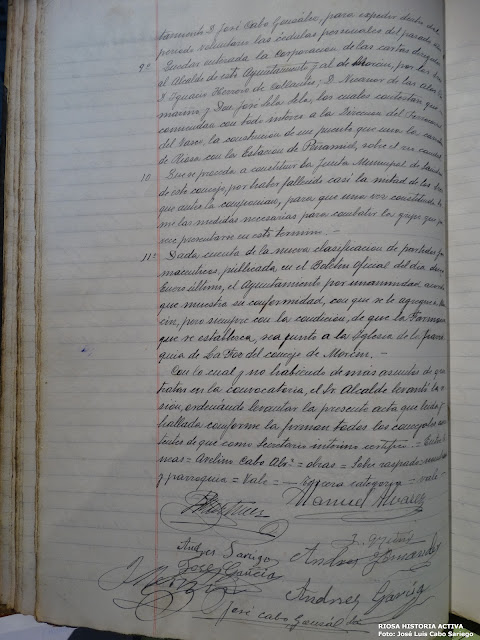 tamiento D. José Cabo González, para expender dentro del
periodo voluntario las cédulas personales del pasado
9º Quedar enterada la Corporación de las cartas dirigidas
al Alcalde de este Ayuntamiento y al de Morcín, por los
D. Ignacio Herrero de Collantes, D. Nicanor de las Alas
marino y Don José Sela Sela, los cuales contestan que
comiendan con todo interés a la Dirección del Ferrocarril
del Vasco, la construcción de un puente que una la carretera
de Riosa con la Estación de Peñamiel, sobre el río Caudal
10. Que se proceda a constituir la Junta Municipal de Sanidad
de este concejo, por haber fallecido casi la mitad de los
que antes la componían, para que una vez constituida
me las medidas necesarias para combatir la gripe que
ece presentarse en este término. —
11º Dada cuenta de la nueva clasificación de partidos far
maceuticos, publicada en el Boletín Oficial del día
Enero último, el Ayuntamiento por unanimidad
que muestra su conformidad, con que se le agregue a Mor
cín, pero siempre con la condición, de que la Farmacia
que se establezca, sea junto a la Iglesia de la parro
quia de La Foz del concejo de Morcín. —
Con lo cual y no habiendo de más asuntos de que
tratar en la convocatoria, el Sr. Alcalde levantó la se
sión, ordenando levantar la presente acta que leída y
hallada conforme la firman todos los concejales
de que como secretario interino certifico. =
mas = Avelino Cabo Alvz = obras = Sobre raspado =
y parroquia = Vale = — tercera categoría = vale =
Manuel Alvarez
Andres Sariego
Andres Fernandez
Jose Garcia
Andres Garcia
José Cabo González
RIOSA HISTORIA ACTIVA
Foto: José Luis Cabo Sariego